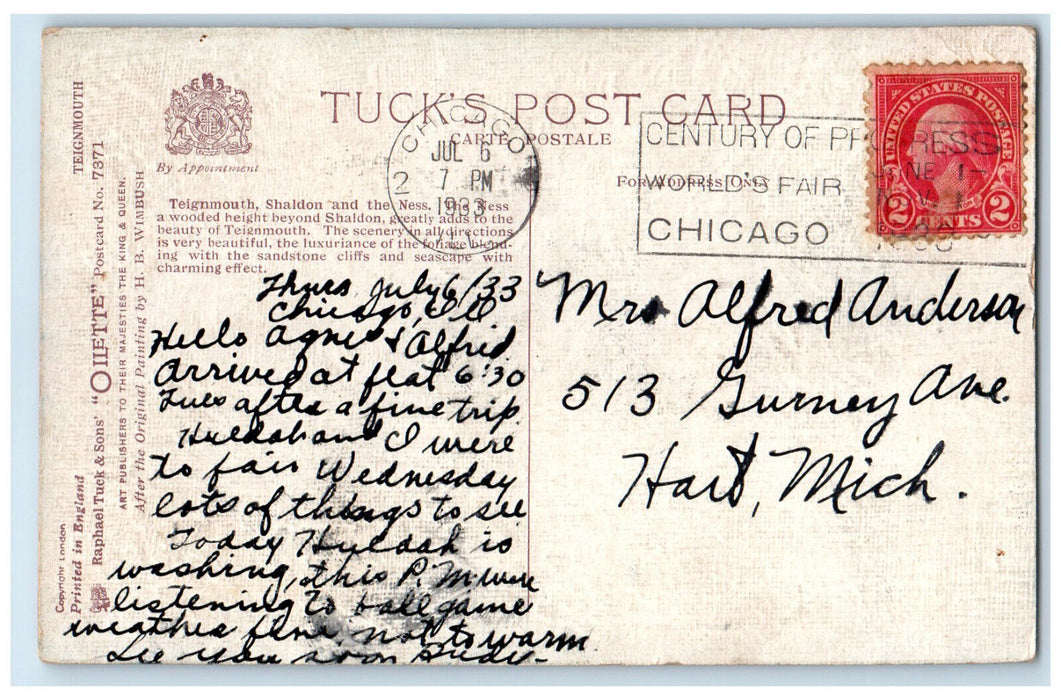 TUCK'S POST CARD
CARTE POSTALE
By Appointment
FOR ADDRESS ONLY
Teignmouth, Shaldon and the Ness. The Ness
a wooded height beyond Shaldon, greatly adds to the
beauty of Teignmouth. The scenery in all directions
is very beautiful, the luxuriance of the foliage blend-
ing with the sandstone cliffs and seascape with
charming effect.
TEIGNMOUTH
Raphael Tuck & Sons' "OILETTE" Postcard No. 7371
ART PUBLISHERS TO THEIR MAJESTIES THE KING & QUEEN.
After the Original Painting by H. B. WIMBUSH
Copyright London
Printed in England
CHICAGO
JUL 6
2 7 PM
1933
ILL.
CENTURY OF PROGRESS
WORLD'S FAIR JUNE 1-
NOV. 1
CHICAGO 1933
UNITED STATES POSTAGE
2 CENTS 2
Thurs July 6/33
Chicago, Ill
Hello Agnes & Alfrid.
Arrived at flat 6:30
Tues after a fine trip.
Huldah and I were
to fair Wednesday
lots of things to see
Today Huldah is
washing, this P.M were
listening to ball game
weather fine, not to warm
See you soon
Mrs Alfred Anderson
513 Gurney Ave.
Hart, Mich.